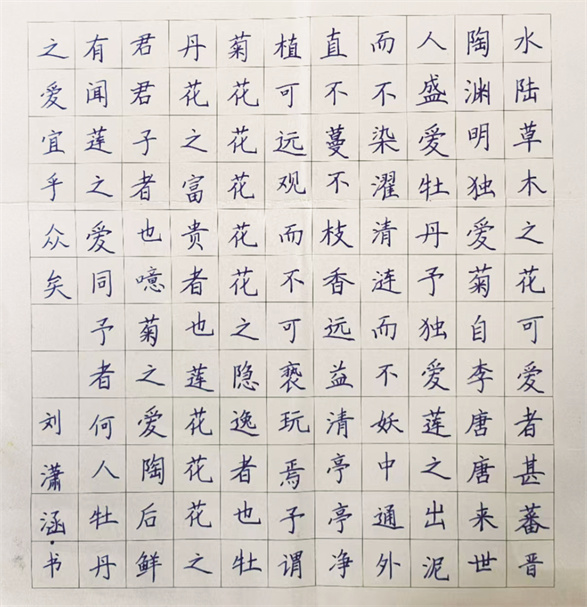 水陆草木之花可爱者甚蕃晋
陶渊明独爱菊自李唐唐来世
人盛爱牡丹予独爱莲之出泥
而不染濯清涟而不妖中通外
直不蔓不枝香远益清亭亭净
植可远观而不可亵玩焉予谓
菊花花花花花之隐逸者也牡
丹花之富贵者也莲花花花之
君君子者也噫菊之爱陶后鲜
有闻莲之爱同予者何人牡丹
之爱宜乎众矣
刘潇涵书